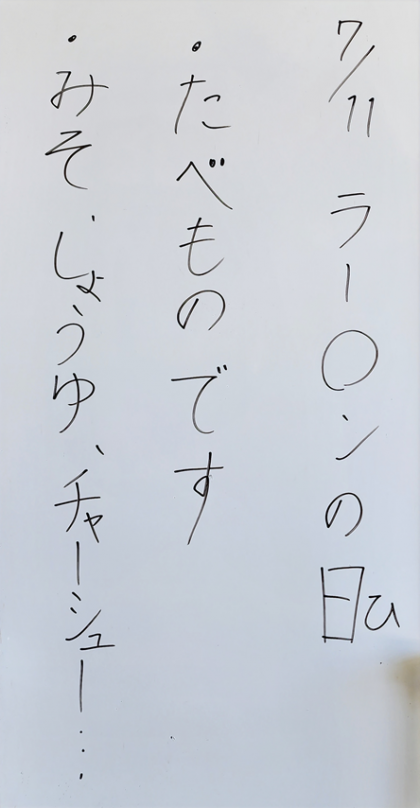 7/11 ラー〇ンの日ひ
・たべものです
・みそ、しょうゆ、チャーシュー…